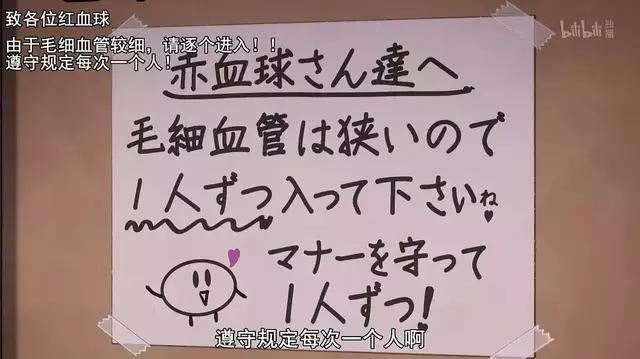 致各位红血球
由于毛细血管较细，请逐个进入！！
遵守规定每次一个人！
bilibili 独播
赤血球さん達へ
毛細血管は狭いので
1人ずつ入って下さいね
マナーを守って
1人ずつ!
遵守规定每次一个人啊